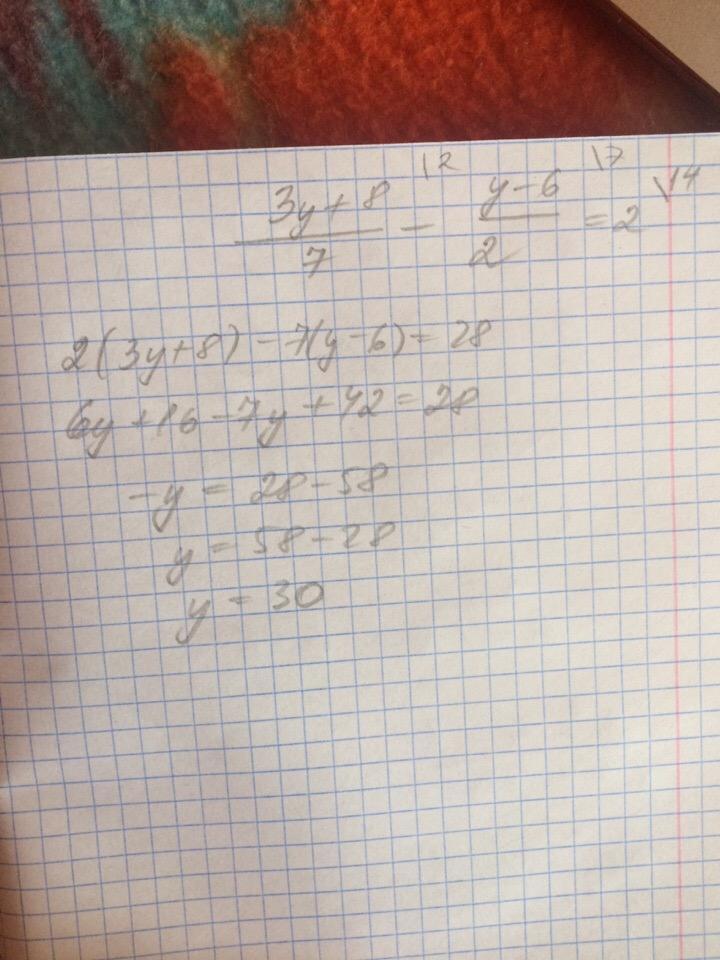 (3y+8)/7 \2 − (y−6)/2 \7 = 2 \14
2(3y+8) − 7(y−6) = 28
6y+16−7y+42=28
−y = 28−58
y = 58−28
y = 30